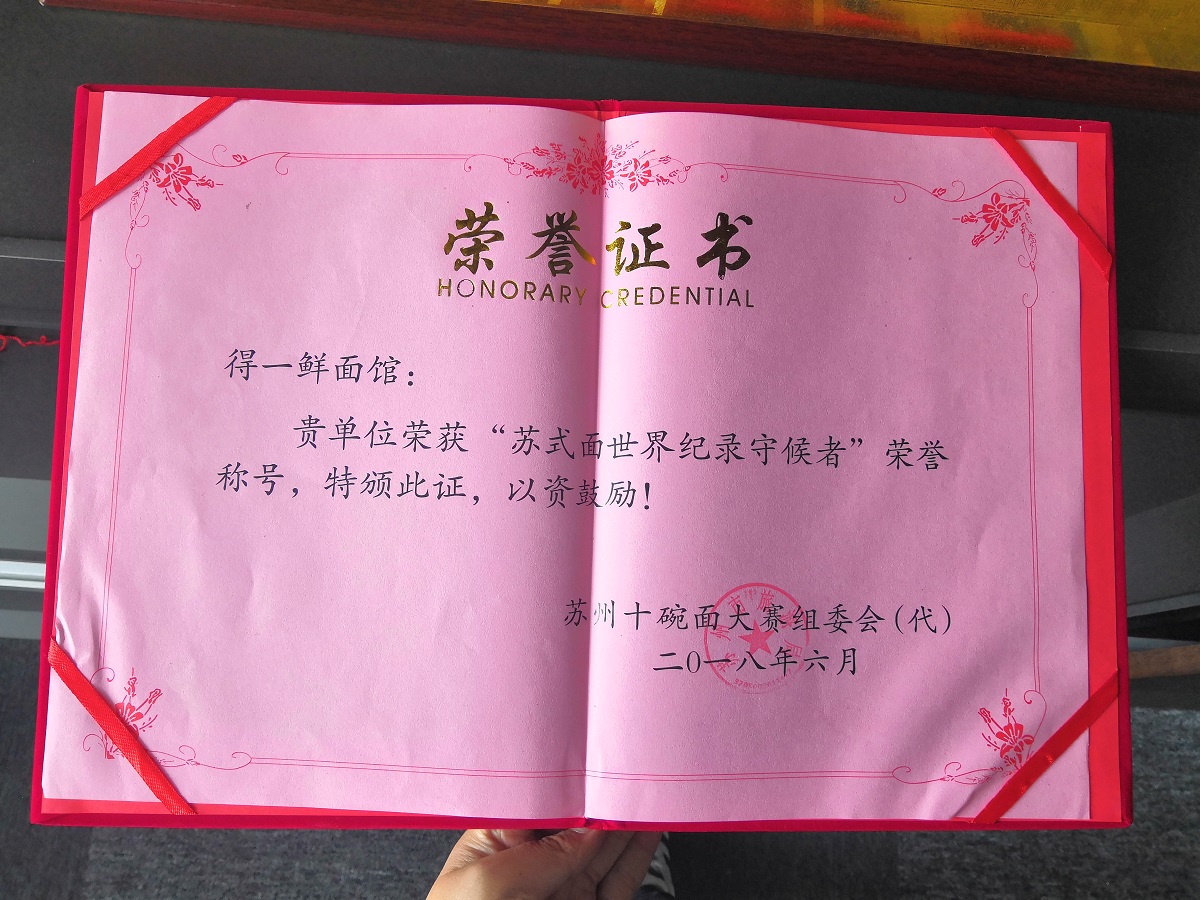 荣誉证书
HONORARY CREDENTIAL
得一鲜面馆：
贵单位荣获“苏式面世界纪录守候者”荣誉
称号，特颁此证，以资鼓励！
苏州十碗面大赛组委会(代)
二0一八年六月